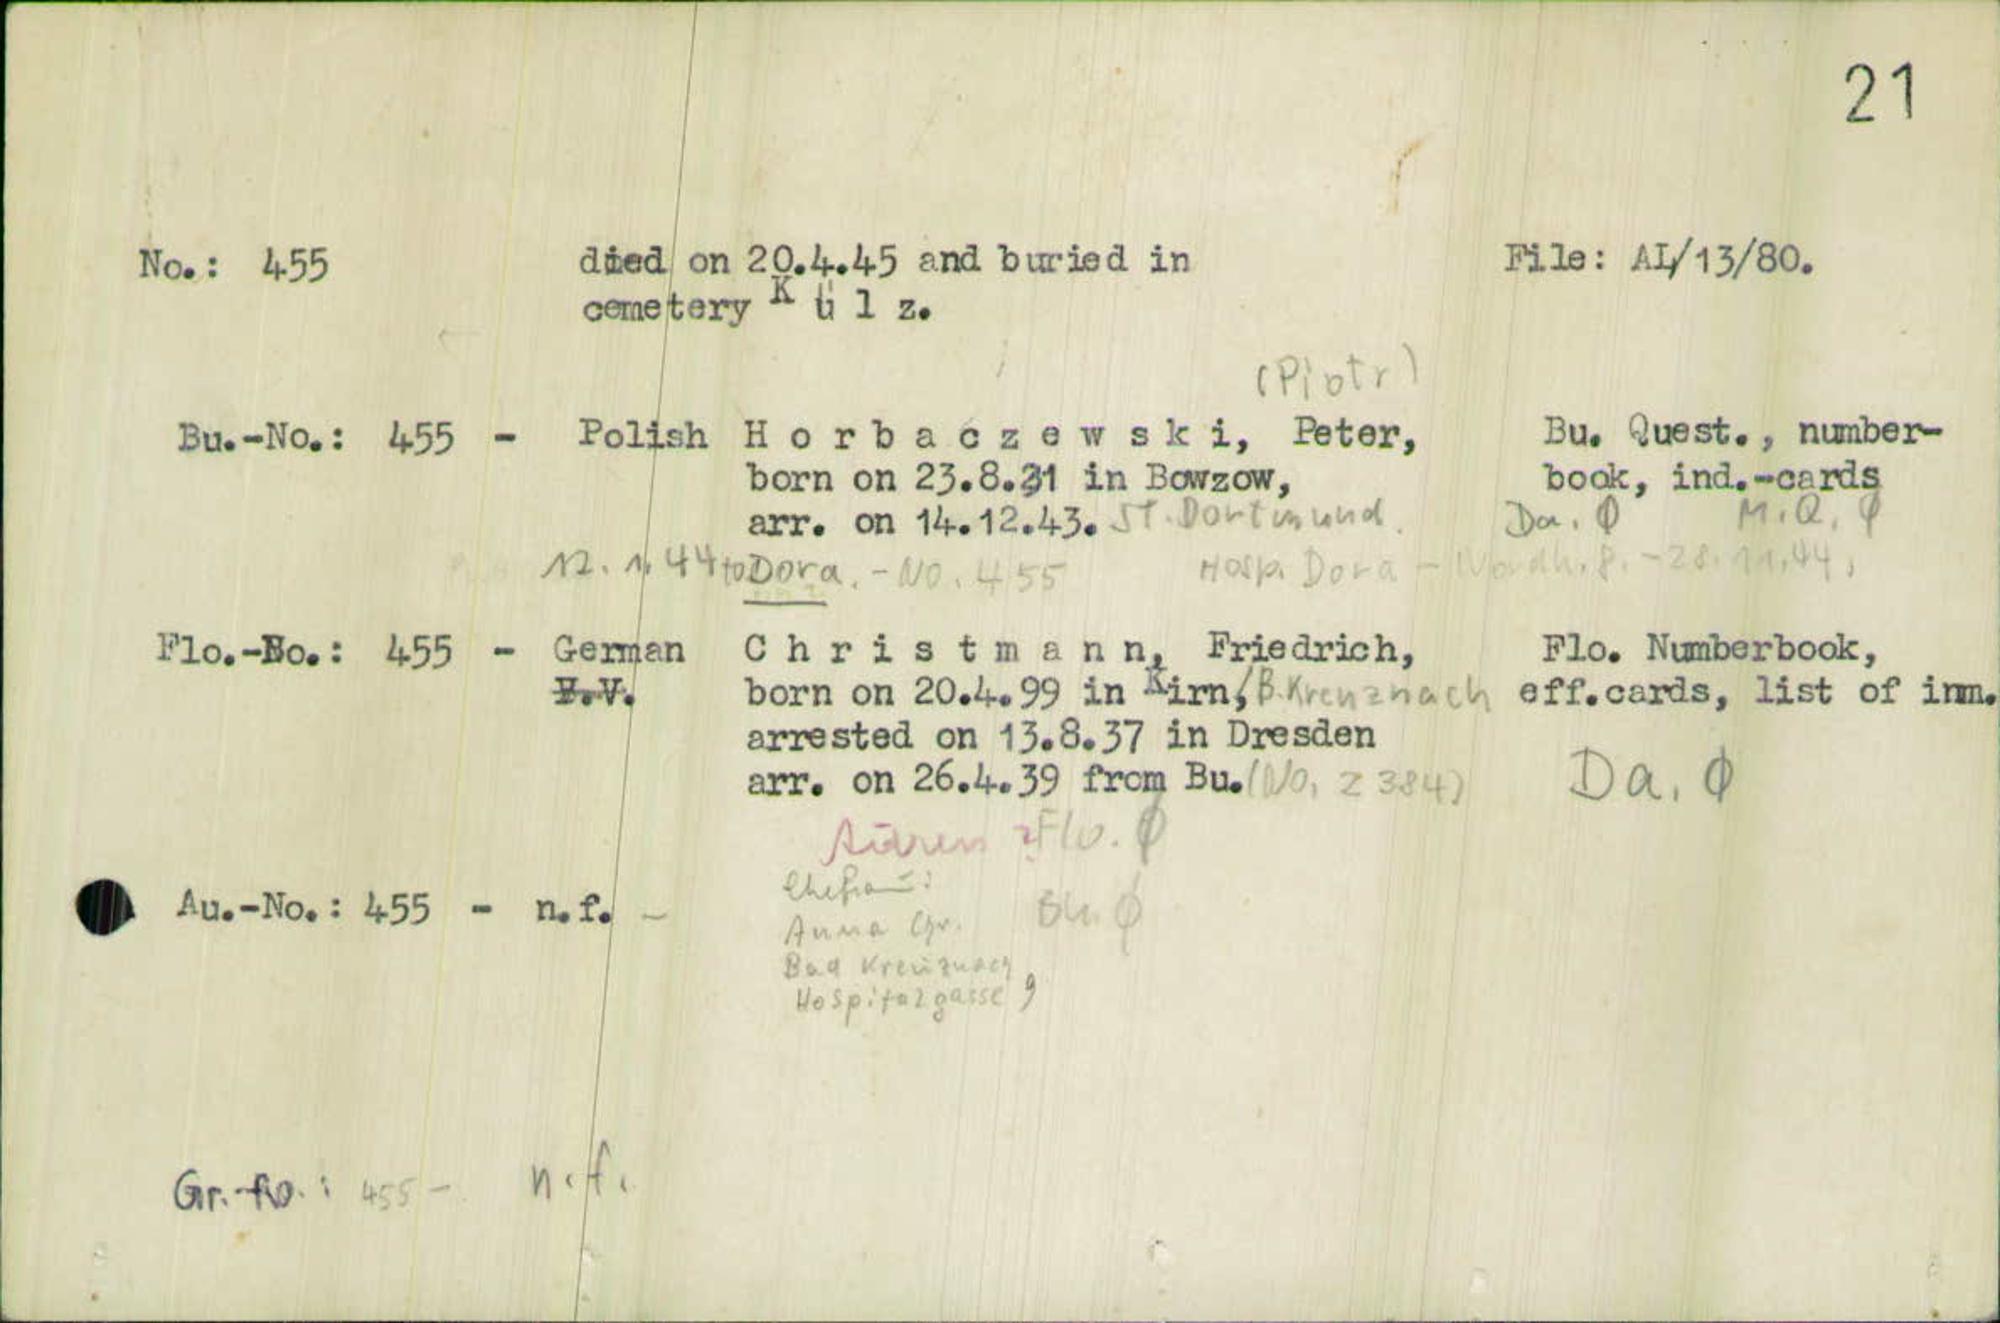 21
No.: 455 died on 20.4.45 and buried in File: AL/13/80.
cemetery K ü l z.
(Piotr)
Bu.-No.: 455 - Polish H o r b a c z e w s k i, Peter, Bu. Quest., number-
born on 23.8.21 in Bowzow, book, ind.-cards
arr. on 14.12.43. St. Dortmund. Da. Ø M.Q. Ø
12. 1. 44 to Dora. - No. 455 Hosp. Dora - Nordh. 8. - 28.11.44.
Flo.-No.: 455 - German C h r i s t m a n n, Friedrich, Flo. Numberbook,
V.V. born on 20.4.99 in Kirn,/B.Kreuznach eff.cards, list of inm.
arrested on 13.8.37 in Dresden
arr. on 26.4.39 from Bu. (No. 2384) Da. Ø
Flo. Ø
Ehefrau:
Au.-No.: 455 - n.f. - Bu. Ø
Anna Chr.
Bad Kreuznach
Hospitalgasse 9
Gr.-No.: 455 - n.f.